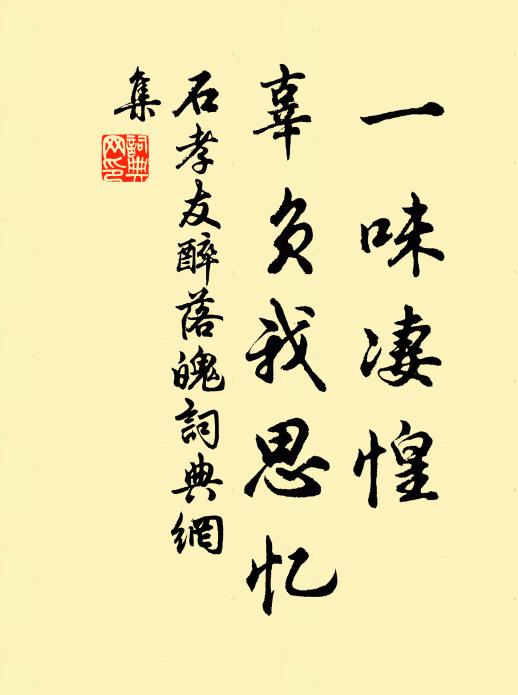 一味凄惶
辜负我思忆
石孝友醉落魄詞典網
集
詞典
网印